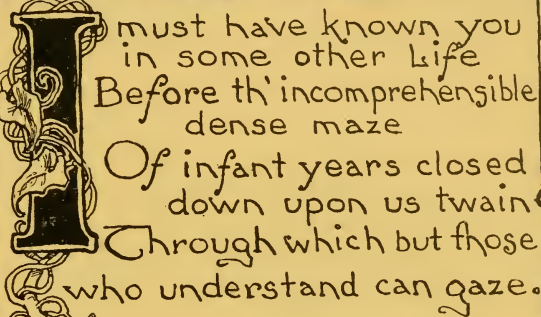 I must have known you
in some other Life
Before th' incomprehensible
dense maze
Of infant years closed
down upon us twain
Through which but those
who understand can gaze.